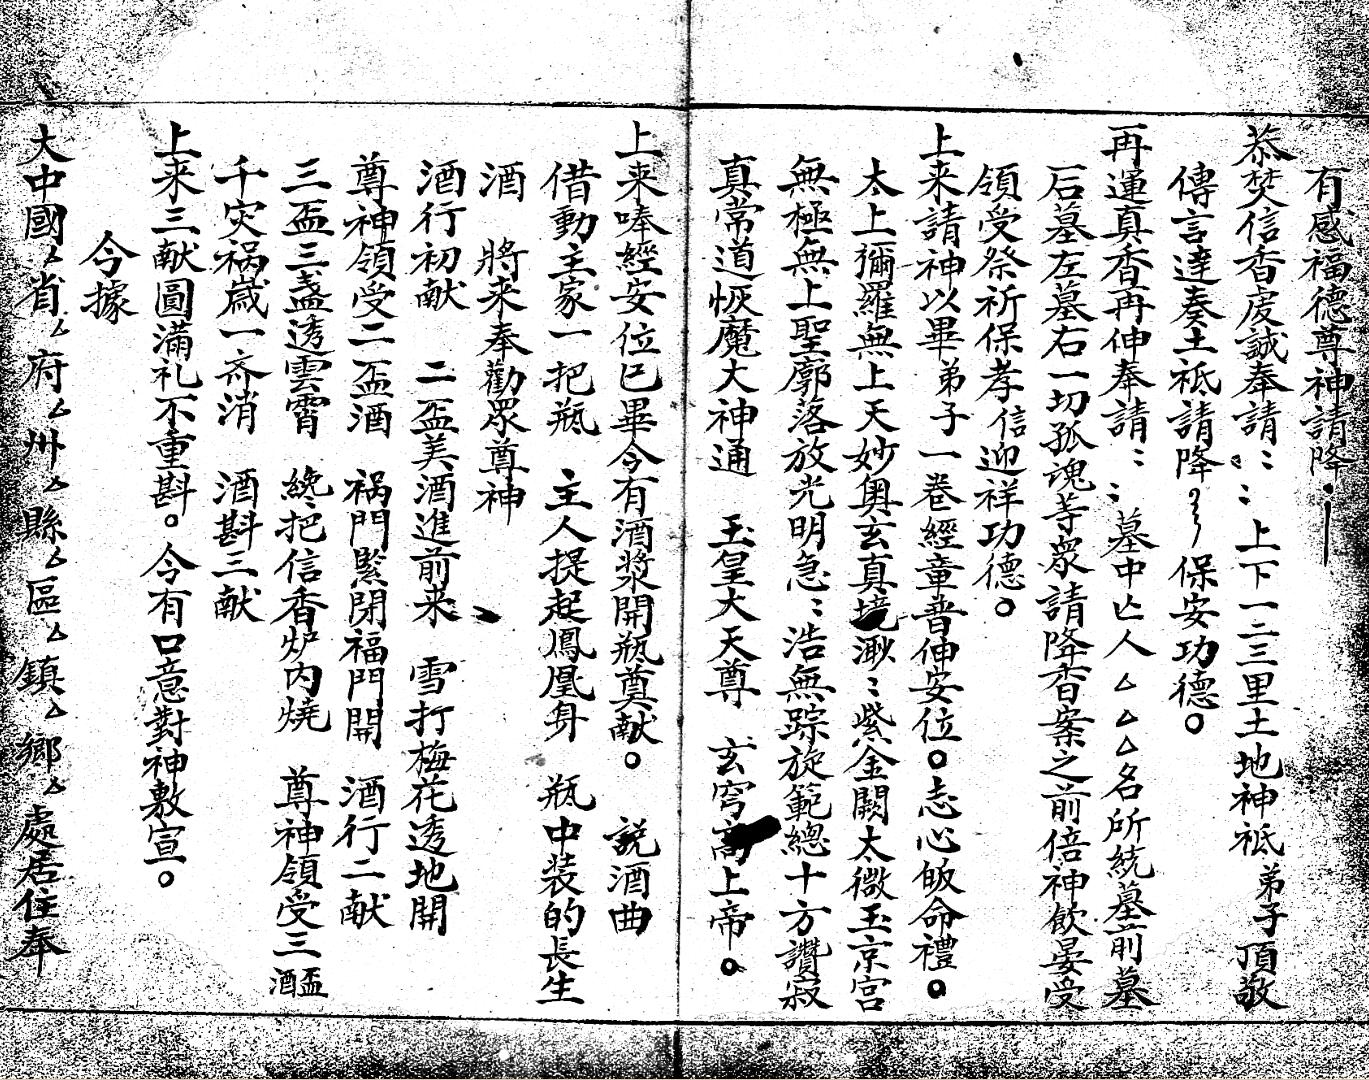 有感福德尊神請降
恭焚信香虔誠奉請：：上下一二三里土地神祗弟子頂敬
傳言達奏土祗請降 保安功德。
再運真香再伸奉請：：墓中亡人△△△名所統墓前墓
后墓左墓右一切孤魂等眾請降香案之前倍神飲宴受
領受祭祈保孝信迎祥功德。
上来請神以畢弟子一卷經章普伸安位。志心皈命禮。
太上彌羅無上天妙奧玄真境渺：紫金闕太微玉京宮
無極無上聖廓落放光明急：浩無踪旋範總十方讚寂
真常道恢魔大神通 玉皇大天尊 玄穹高上帝。
上来唪經安位已畢今有酒漿開瓶奠献。 説酒曲
借動主家一把瓶 主人提起鳳凰身 瓶中装的長生
酒 將来奉勸眾尊神
酒行初献 二盃美酒進前来 雪打梅花透地開
尊神領受二盃酒 祸門緊閉福門開 酒行二献
三盃三盞透雲霄 纔把信香炉内燒 尊神領受三盃酒
千灾祸歳一斉消 酒斟三献
上来三献圓滿礼不重斟。今有口意對神敷宣。
今據
大中國△省△府△州△縣△區△鎮△鄉△處居住奉